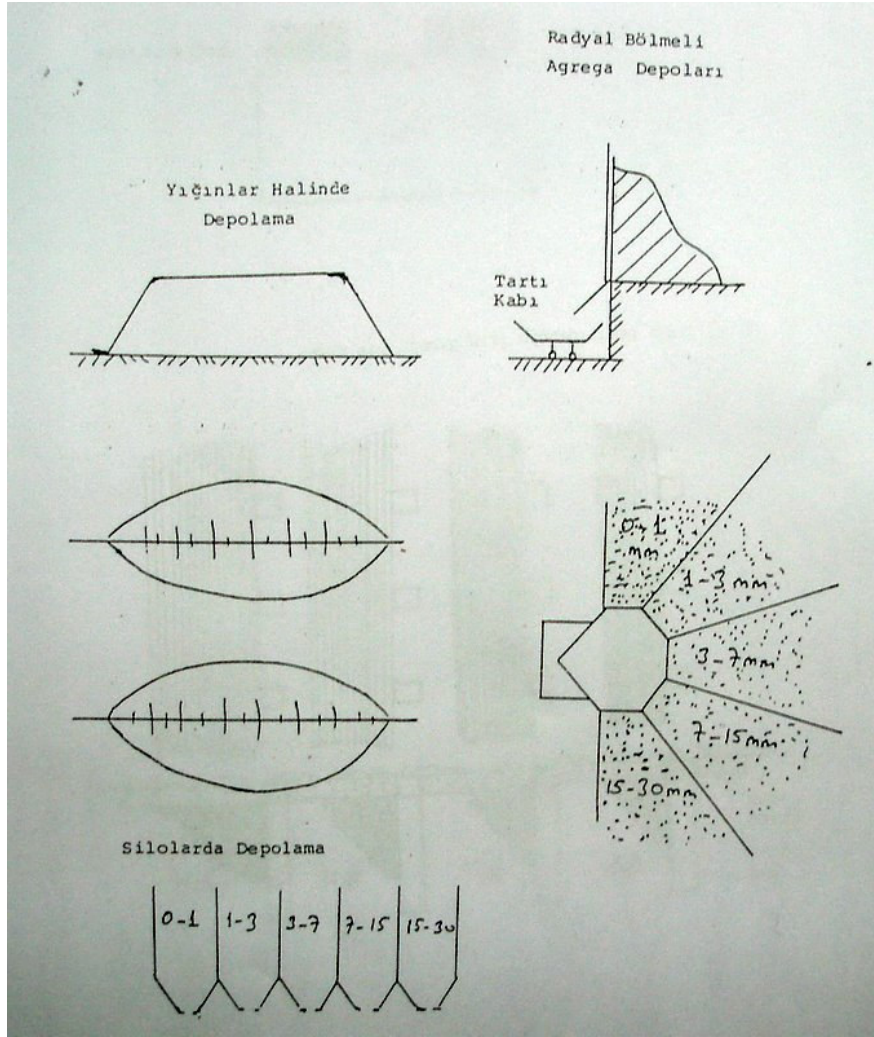 Radyal Bölmeli
Agrega Depoları
Yığınlar Halinde
Depolama
Tartı
Kabı
0-1
mm
1-3 mm
3-7mm
7-15mm
15-30mm
Silolarda Depolama
0-1 1-3 3-7 7-15 15-30